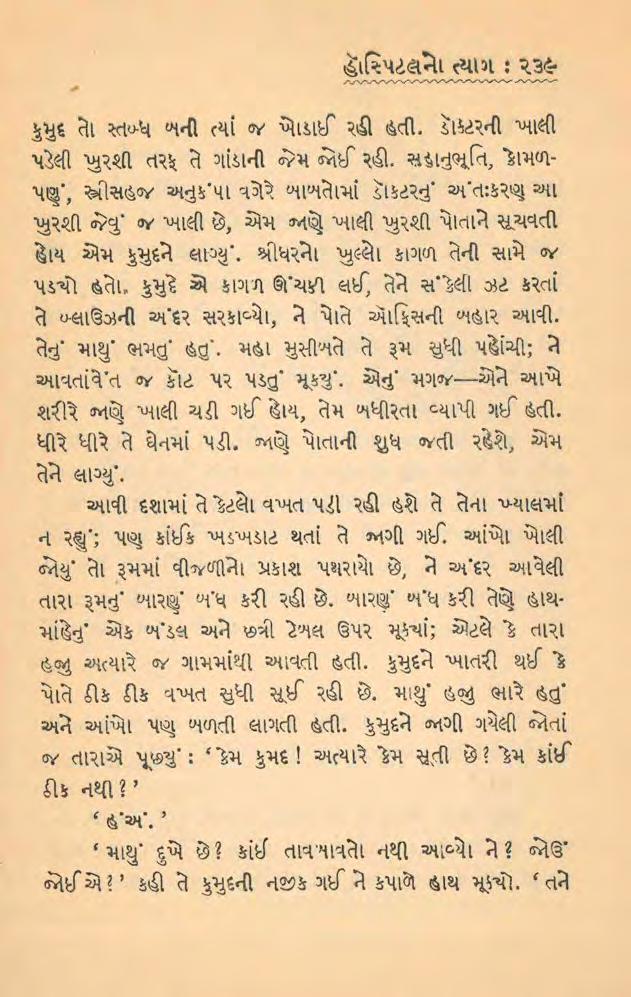 હૉસ્પિટલનો ત્યાગ : ૨૩૯
કુમુદ તો સ્તબ્ધ બની ત્યાં જ ખોડાઈ રહી હતી. ડૉક્ટરની ખાલી
પડેલી ખુરશી તરફ તે ગાંડાની જેમ જોઈ રહી. સહાનુભૂતિ, કોમળ-
પણું, સ્ત્રીસહજ અનુકંપા વગેરે બાબતોમાં ડૉકટરનું અંતઃકરણ આ
ખુરશી જેવું જ ખાલી છે, એમ જાણે ખાલી ખુરશી પોતાને સૂચવતી
હોય એમ કુમુદને લાગ્યું. શ્રીધરનો ખુલ્લો કાગળ તેની સામે જ
પડ્યો હતો. કુમુદે એ કાગળ ઊંચકી લઈ, તેને સંકેલી ઝટ કરતાં
તે બ્લાઉઝની અંદર સરકાવ્યો, ને પોતે ઑફિસની બહાર આવી.
તેનું માથું ભમતું હતું. મહા મુસીબતે તે રૂમ સુધી પહોંચી; ને
આવતાંવેંત જ કૉટ પર પડતું મૂક્યું. એનું મગજ—એને આખે
શરીરે જાણે ખાલી ચડી ગઈ હોય, તેમ બધીરતા વ્યાપી ગઈ હતી.
ધીરે ધીરે તે ઘેનમાં પડી. જાણે પોતાની શુધ જતી રહેશે, એમ
તેને લાગ્યું.
આવી દશામાં તે કેટલો વખત પડી રહી હશે તે તેના ખ્યાલમાં
ન રહ્યું; પણ કાંઈક ખડખડાટ થતાં તે જાગી ગઈ. આંખો ખોલી
જોયું તો રૂમમાં વીજળીનો પ્રકાશ પથરાયો છે, ને અંદર આવેલી
તારા રૂમનું બારણું બંધ કરી રહી છે. બારણું બંધ કરી તેણે હાથ-
માંહેનું એક બંડલ અને છત્રી ટેબલ ઉપર મૂક્યાં; એટલે કે તારા
હજુ અત્યારે જ ગામમાંથી આવતી હતી. કુમુદને ખાતરી થઈ કે
પોતે ઠીક ઠીક વખત સુધી સૂઈ રહી છે. માથું હજુ ભારે હતું
અને આંખો પણ બળતી લાગતી હતી. કુમુદને જાગી ગયેલી જોતાં
જ તારાએ પૂછ્યું : ‘કેમ કુમદ! અત્યારે કેમ સૂતી છે? કેમ કાંઈ
ઠીક નથી?’
‘હંઅં.’
‘માથું દુખે છે? કાંઈ તાવબાવતો નથી આવ્યો ને? જોઉં
જોઈએ?’ કહી તે કુમુદની નજીક ગઈ ને કપાળે હાથ મૂક્યો. ‘તને